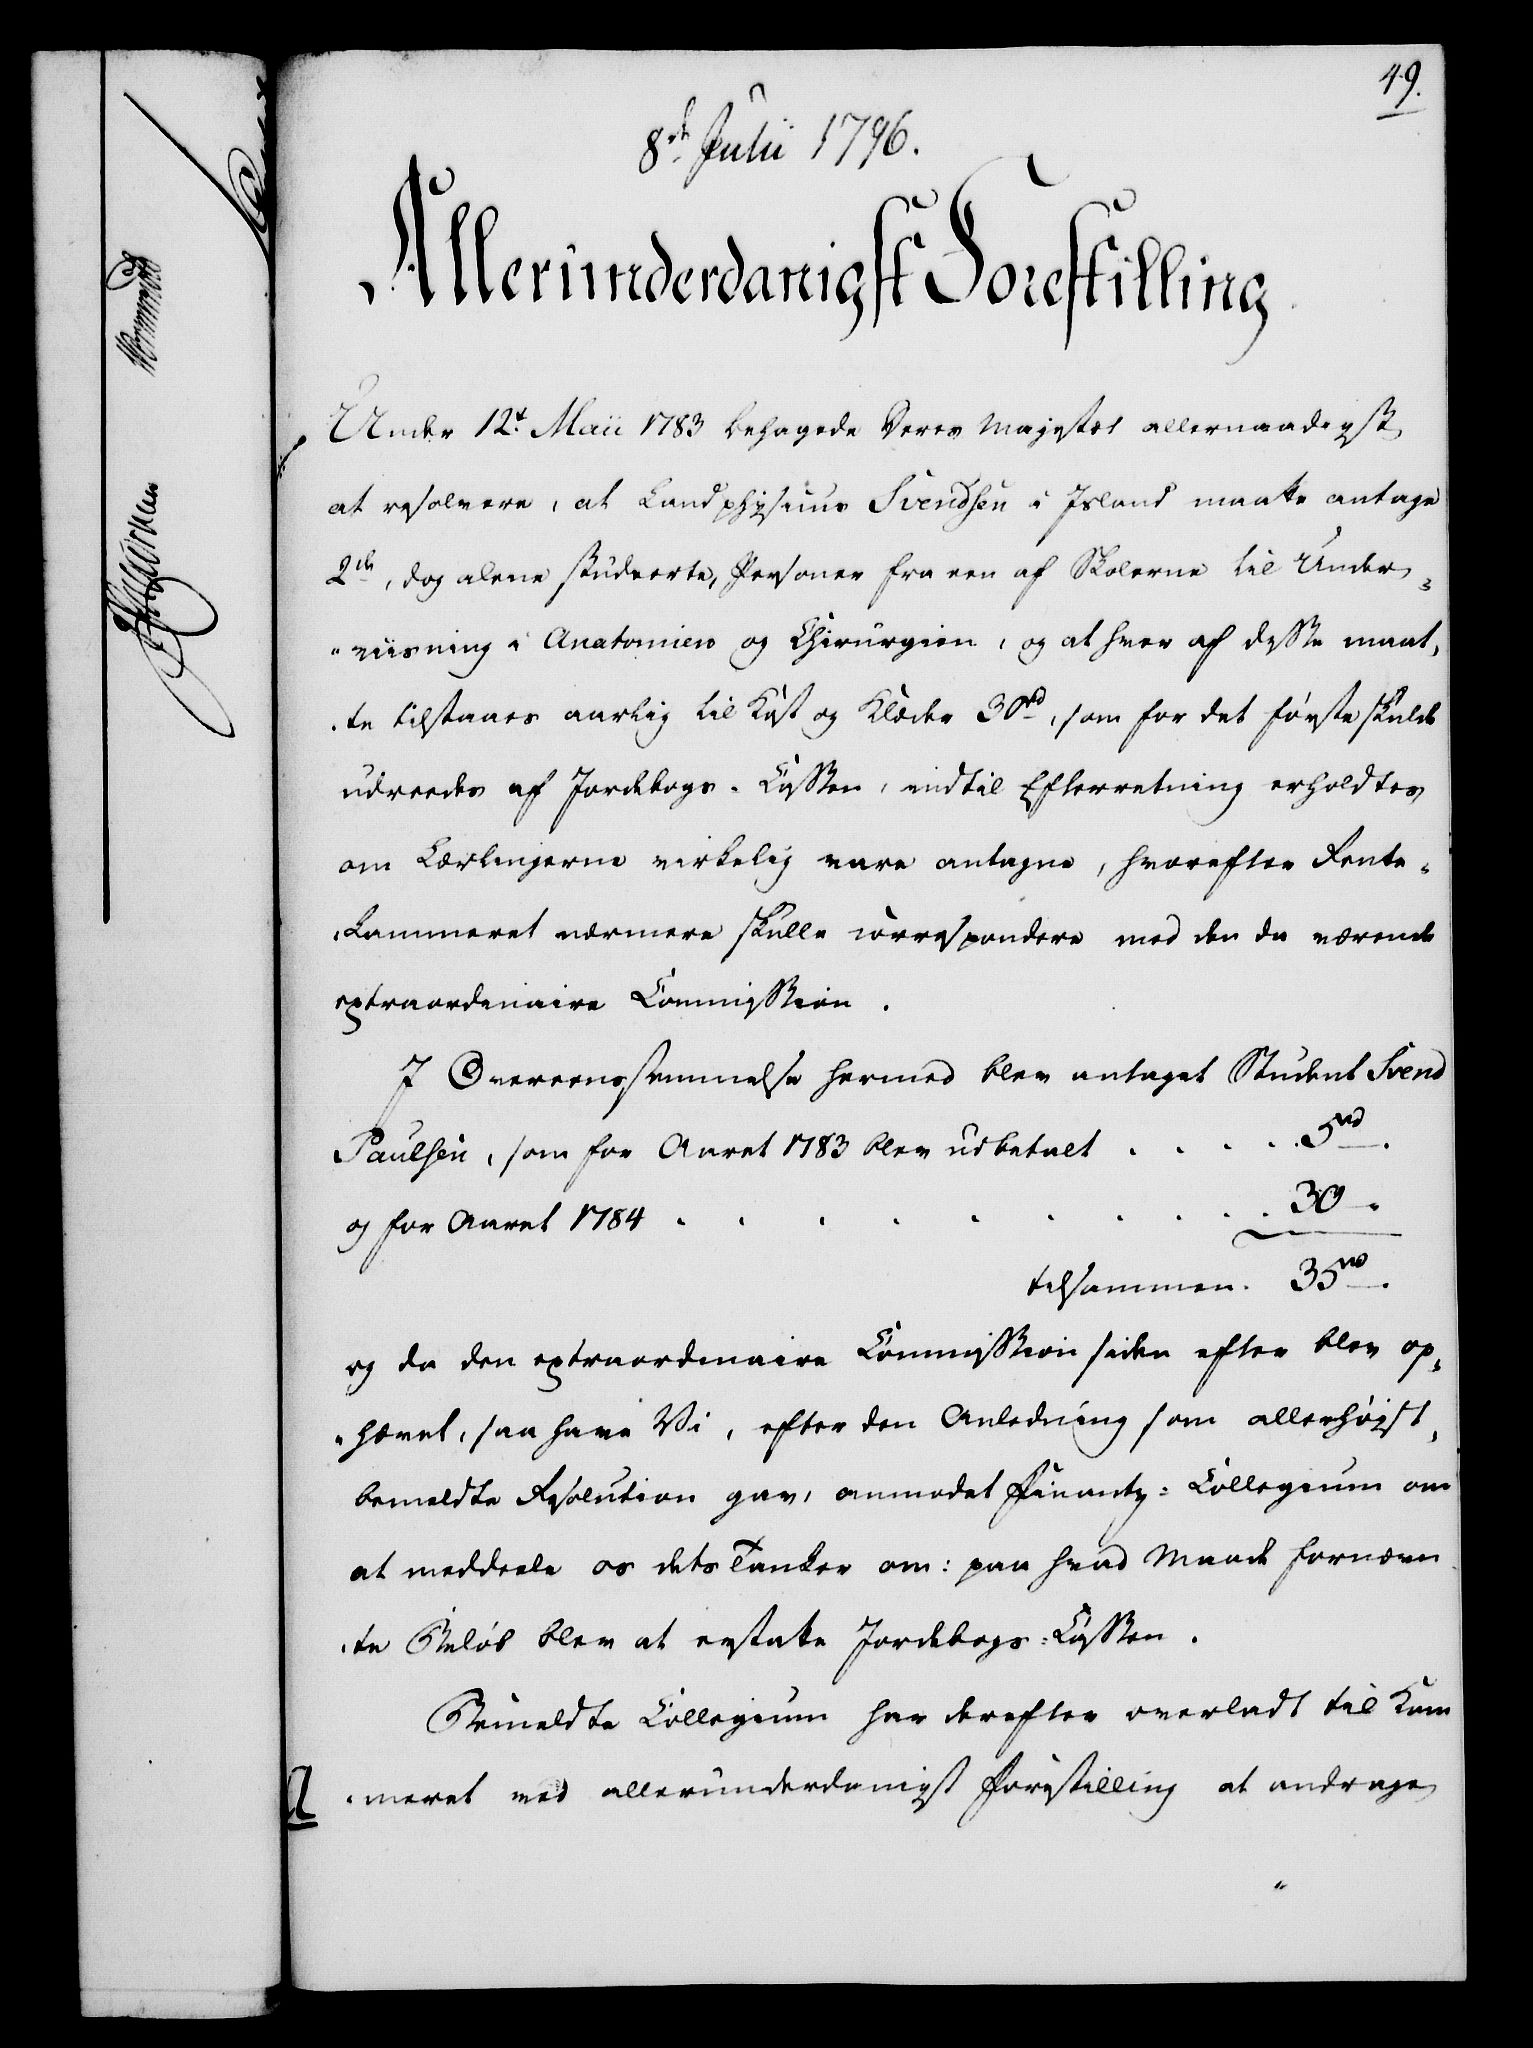 49.
8de Julii 1796.
Allerunderdanigst Forestilling
Under 12t Maii 1783 behagede Deres Majestæt allernaadigst
at resolvere, at Landphysicus Svendsen i Island maatte antage
2de, dog alene studeerte, Personer fra een af Skolerne til Under-
viisning i Anatomien og Chirurgien, og at hver af disse maat-
te tilstaaes aarlig til Kost og Klæder 30rd, som for det første skulde
udreedes af Jordebogs-Cassen, indtil Efterretning erholdtes
om Lærlingerne virkelig vare antagne, hvorefter Rente-
kammeret nærmere skulle correspondere med den da værende
extraordinaire Commission.
I Overeensstemmelse hermed blev antaget Student Svend
Paulsen, som for Aaret 1783 blev udbetalt . . . . . 5rd.
og for Aaret 1784 . . . . . . . . . . 30 -
tilsammen. 35rd.
og da den extraordinaire Commission siden efter blev op-
hævet, saa have Vi, efter den Anledning som allerhøjst-
bemeldte Resolution gav, anmodet Finantz-Collegium om
at meddeele os dets Tanker om: paa hvad Maade fornævn
te Beløb blev at erstatte Jordebogs-Cassen.
Bemeldte Collegium har derefter overladt til Kam
meret ved allerunderdanigst Forestilling at andrage